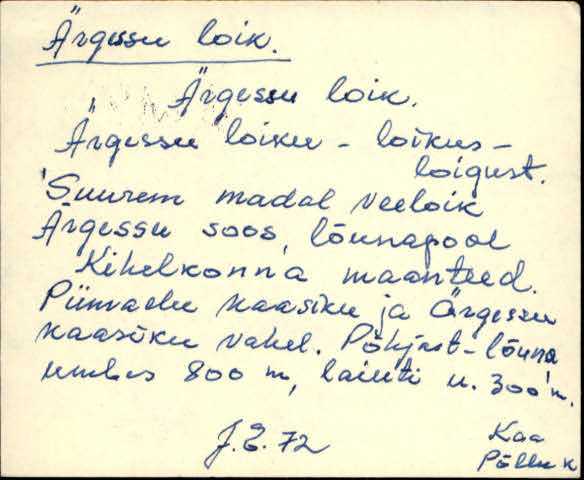 Ärgessu loik.
Ärgessu loik.
Ärgessu loiku - loikus -
loigust.
Suurem madal veeloik
Ärgessu soos, lõunapool
Kihelkonna maanteed.
kaasiku ja Ärgessu
kaasiku vahel. Põhjast-lõuna
umbes 800 m, laiuti u. 300 m.
J.E. 72
Kaa
Põllu k